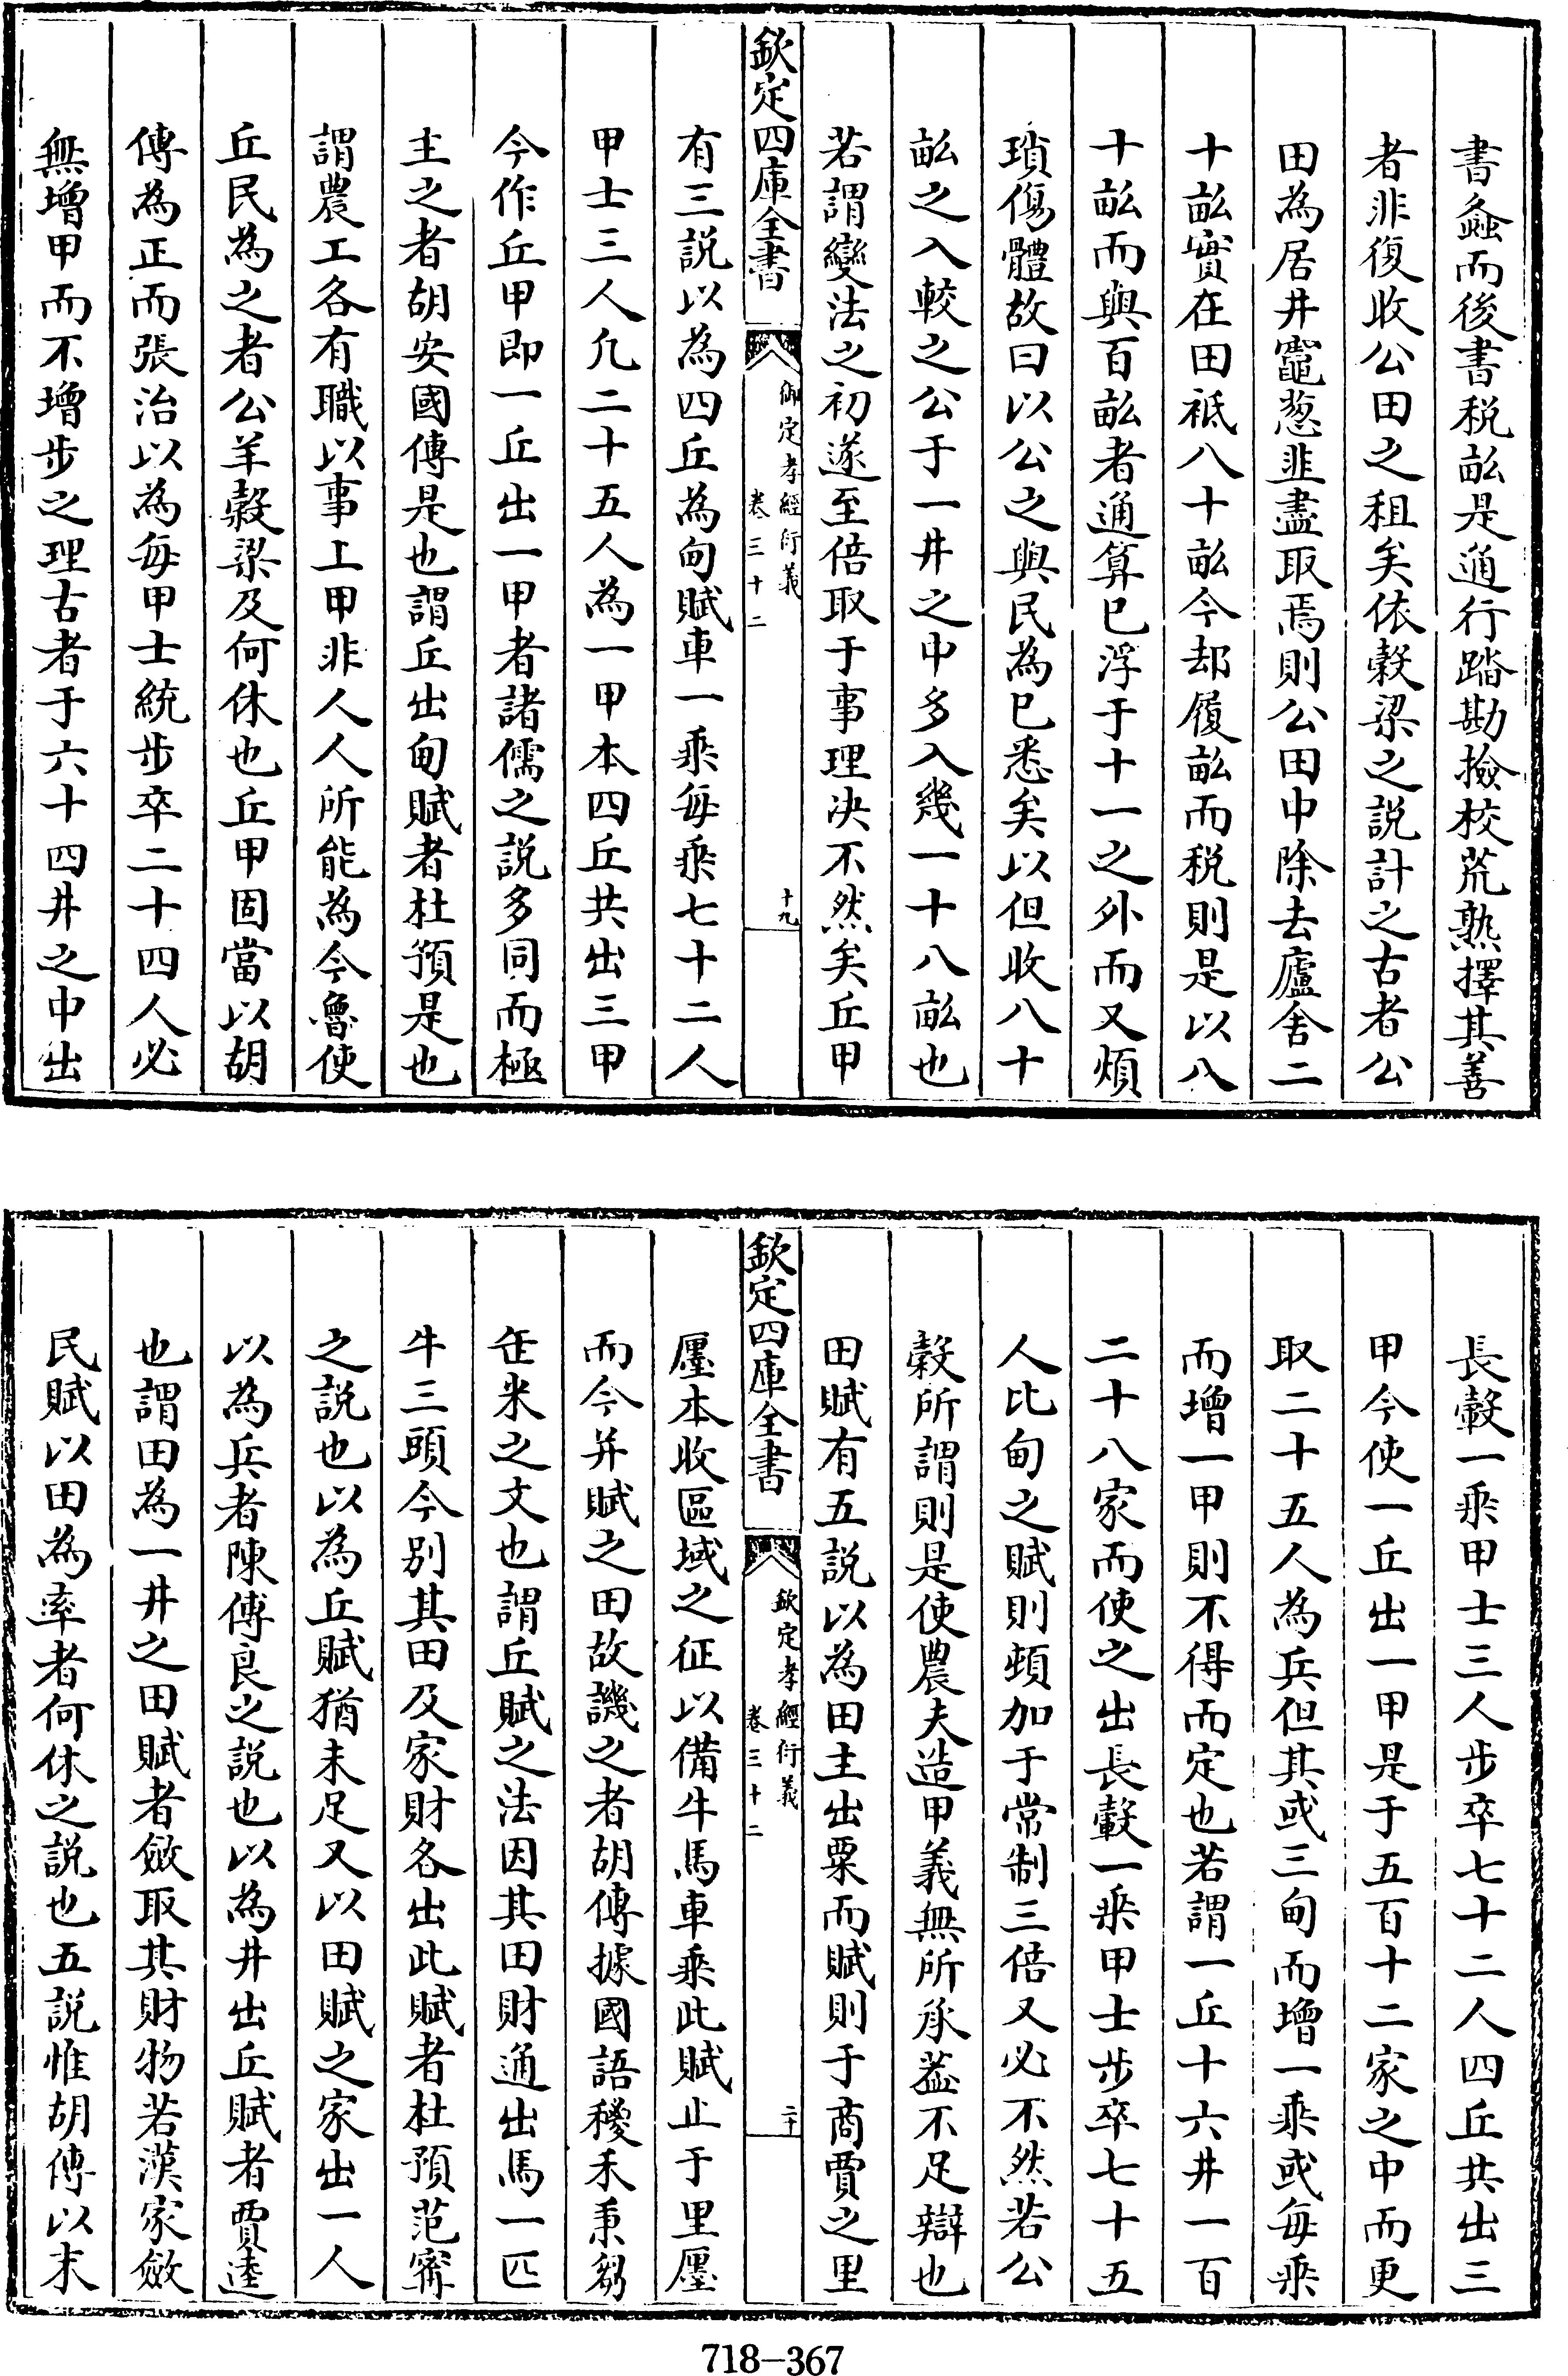 書螽而後書税畝是通行踏勘撿校荒熟擇其善
者非復收公田之租矣依榖梁之説計之古者公
田為居井竈葱韭盡取焉則公田中除去廬舍二
十畝實在田祗八十畝今却履畝而税則是以八
十畝而與百畝者通算已浮于十一之外而又煩
瑣傷體故曰以公之與民為已悉矣以但收八十
畝之入較之公于一井之中多入幾一十八畝也
若謂變法之初遂至倍取于事理决不然矣丘甲
欽定四庫全書
御定孝經衍義
卷三十二
十九
有三説以為四丘為甸賦車一乘每乘七十二人
甲士三人凢二十五人為一甲本四丘共出三甲
今作丘甲即一丘出一甲者諸儒之説多同而極
主之者胡安國傳是也謂丘出甸賦者杜預是也
謂農工各有職以事上甲非人人所能為今魯使
丘民為之者公羊榖梁及何休也丘甲固當以胡
傳為正而張洽以為每甲士統步卒二十四人必
無增甲而不增步之理古者于六十四井之中出
長轂一乘甲士三人步卒七十二人四丘共出三
甲今使一丘出一甲是于五百十二家之中而更
取二十五人為兵但其或三甸而增一乘或每乘
而增一甲則不得而定也若謂一丘十六井一百
二十八家而使之出長轂一乘甲士步卒七十五
人比甸之賦則頓加于常制三倍又必不然若公
榖所謂則是使農夫造甲義無所承葢不足辯也
田賦有五説以為田主出粟而賦則于商賈之里
欽定四庫全書
欽定孝經衍義
卷三十二
二十
廛本收區域之征以備牛馬車乘此賦止于里廛
而今并賦之田故譏之者胡傳據國語稯禾秉芻
缶米之文也謂丘賦之法因其田財通出馬一匹
牛三頭今别其田及家財各出此賦者杜預范甯
之説也以為丘賦猶未足又以田賦之家出一人
以為兵者陳傅良之説也以為井出丘賦者賈逵
也謂田為一井之田賦者斂取其財物若漢家斂
民賦以田為率者何休之説也五説惟胡傳以末
718-367